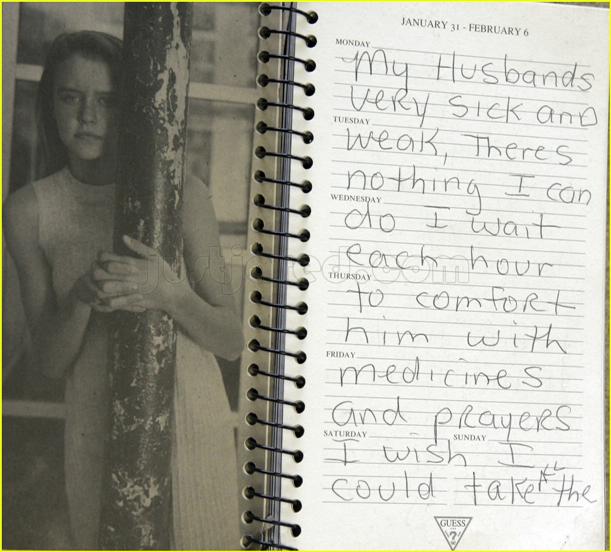 JANUARY 31 - FEBRUARY 6
MONDAY
My Husbands
very sick and
TUESDAY
weak, Theres
nothing I can
WEDNESDAY
do I wait
each hour
THURSDAY
to comfort
him with
FRIDAY
medicines
and prayers
SATURDAY SUNDAY
I wish I
could take ALL the
GUESS
?
justjared.com